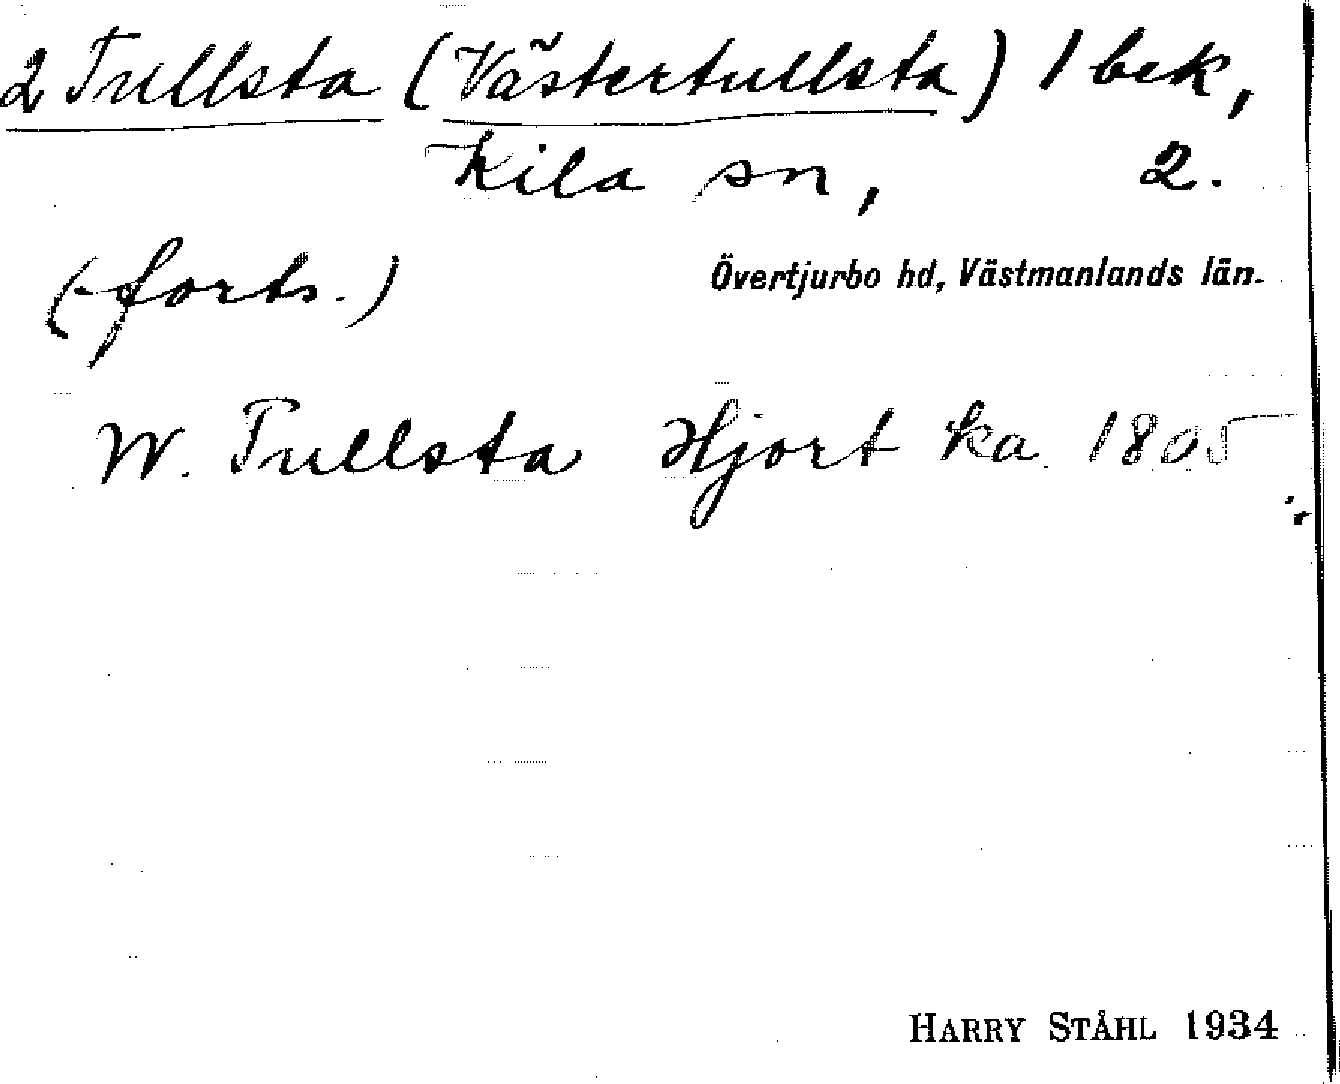 2 Tullsta (Västertullsta) 1 bek,
Kila sn, 2.
(-forts.) Övertjurbo hd, Västmanlands län.
W. Tullsta Hjort ka. 1805
HARRY STÅHL 1934